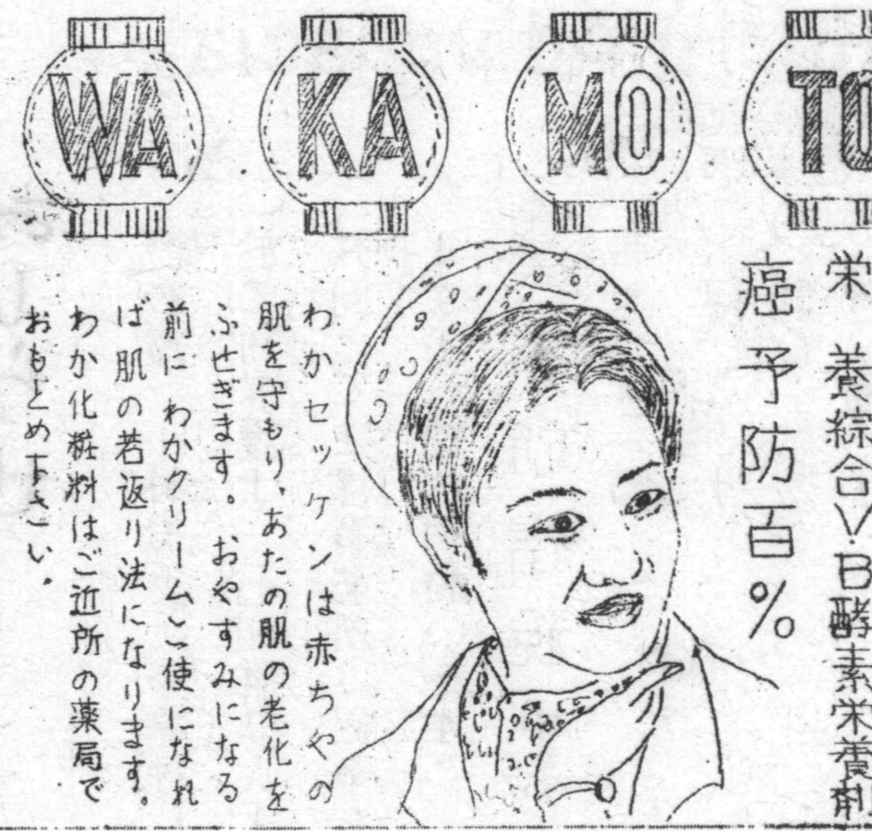 WA KA MO TO
栄養綜合V.B酵素栄養剤
癌予防百%
わかセッケンは赤ちやの
肌を守もり、あたの肌の老化を
ふせぎます。おやすみになる
前にわかクリームご使になれ
ば肌の若返り法になります。
わか化粧料はご近所の薬局で
おもとめ下さい.